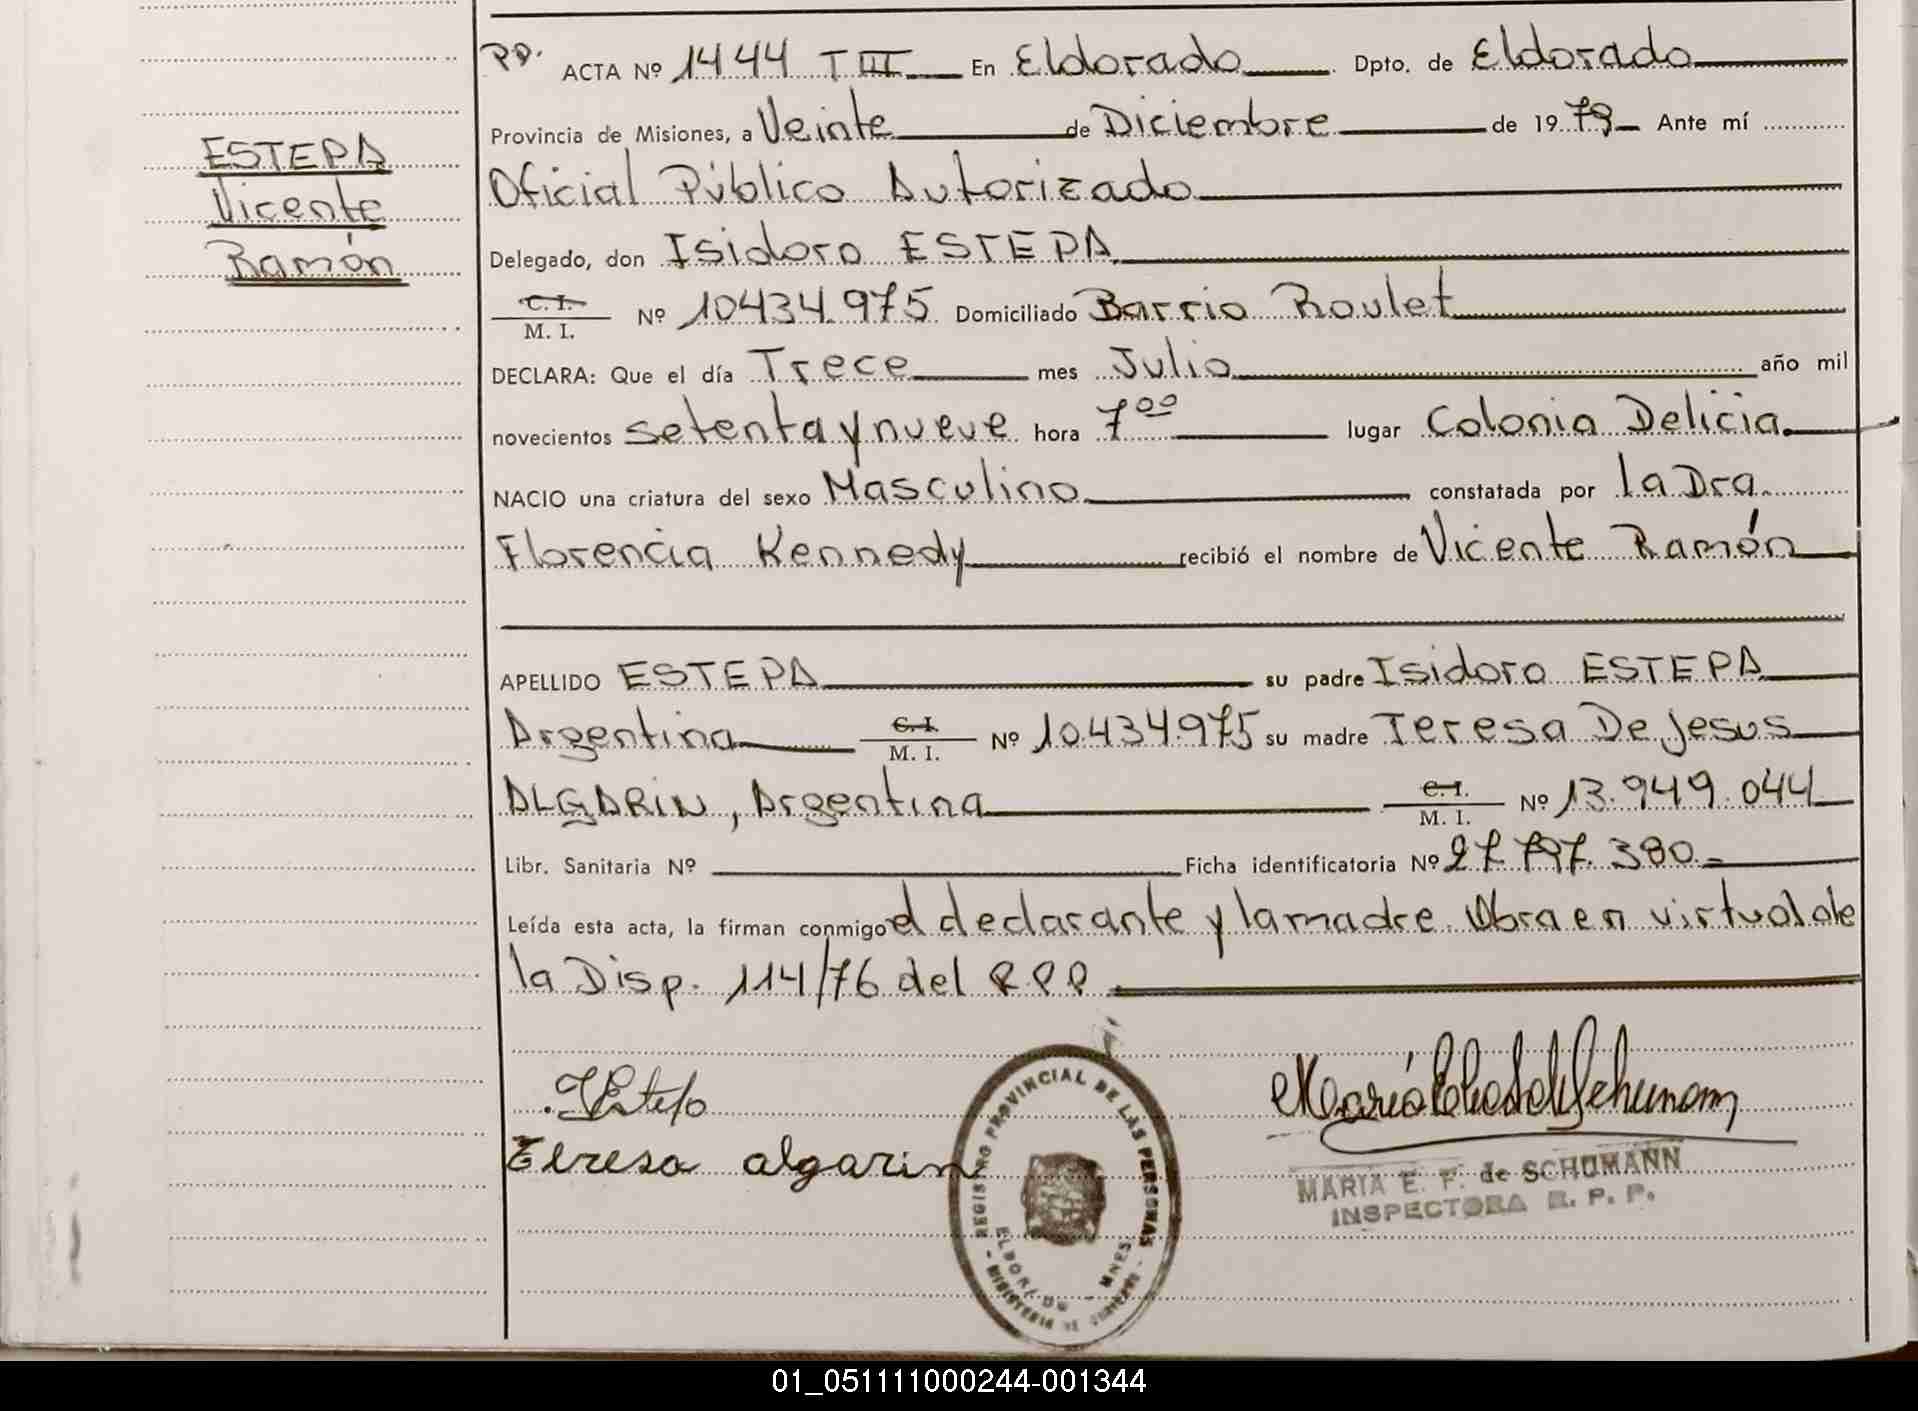 ESTEPA
Vicente
Ramón
PP. ACTA Nº 1444 T III En Eldorado Dpto. de Eldorado
Provincia de Misiones, a Veinte de Diciembre de 1979 Ante mí
Oficial Público Autorizado
Delegado, don Isidoro ESTEPA
C. I.
M. I. Nº 10434.975 Domiciliado Barrio Roulet
DECLARA: Que el día Trece mes Julio año mil
novecientos setenta y nueve hora 7⁰⁰ lugar Colonia Delicia
NACIO una criatura del sexo Masculino constatada por la Dra.
Florencia Kennedy recibió el nombre de Vicente Ramón
APELLIDO ESTEPA su padre Isidoro ESTEPA
Argentina C. I.
M. I. Nº 10.434.975 su madre Teresa De Jesus
ALGARIN, Argentina C. I.
M. I. Nº 13.949.044
Libr. Sanitaria Nº Ficha identificatoria Nº 27.797.380
Leída esta acta, la firman conmigo el declarante y la madre. Obra en virtud de
la Disp. 114/76 del RPP
Teresa algarin
REGISTRO PROVINCIAL DE LAS PERSONAS
ELDORADO - MNES
MINISTERIO DE GOBIERNO
MARIA E. F. de SCHUMANN
INSPECTORA R. P. P.
01_051111000244-001344